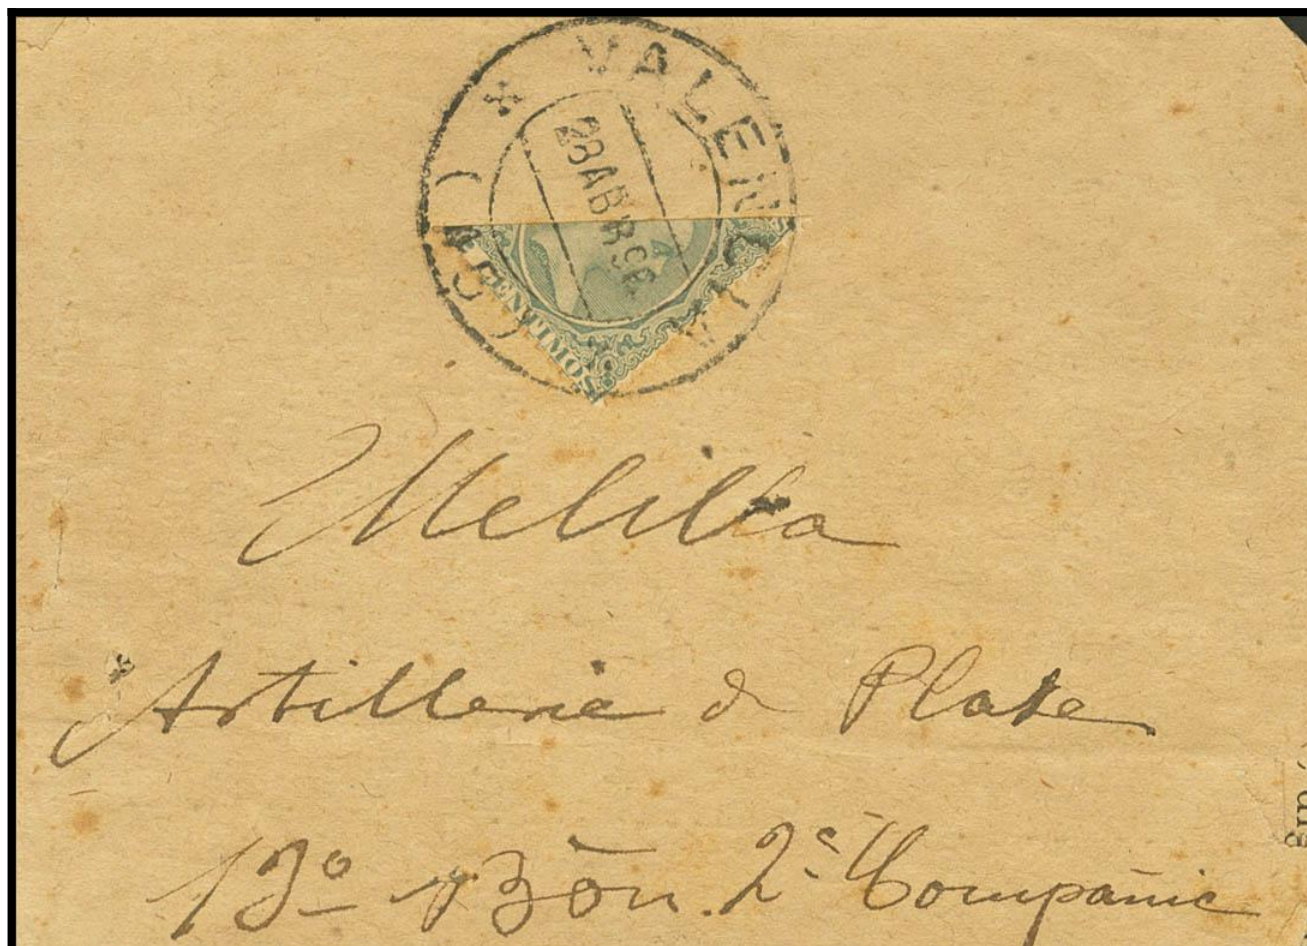 * VALENCIA
(45)
23ABR96
CENTIMOS
Melilla
Artilleria d Plaza
13º Bón. 2ª Compañia